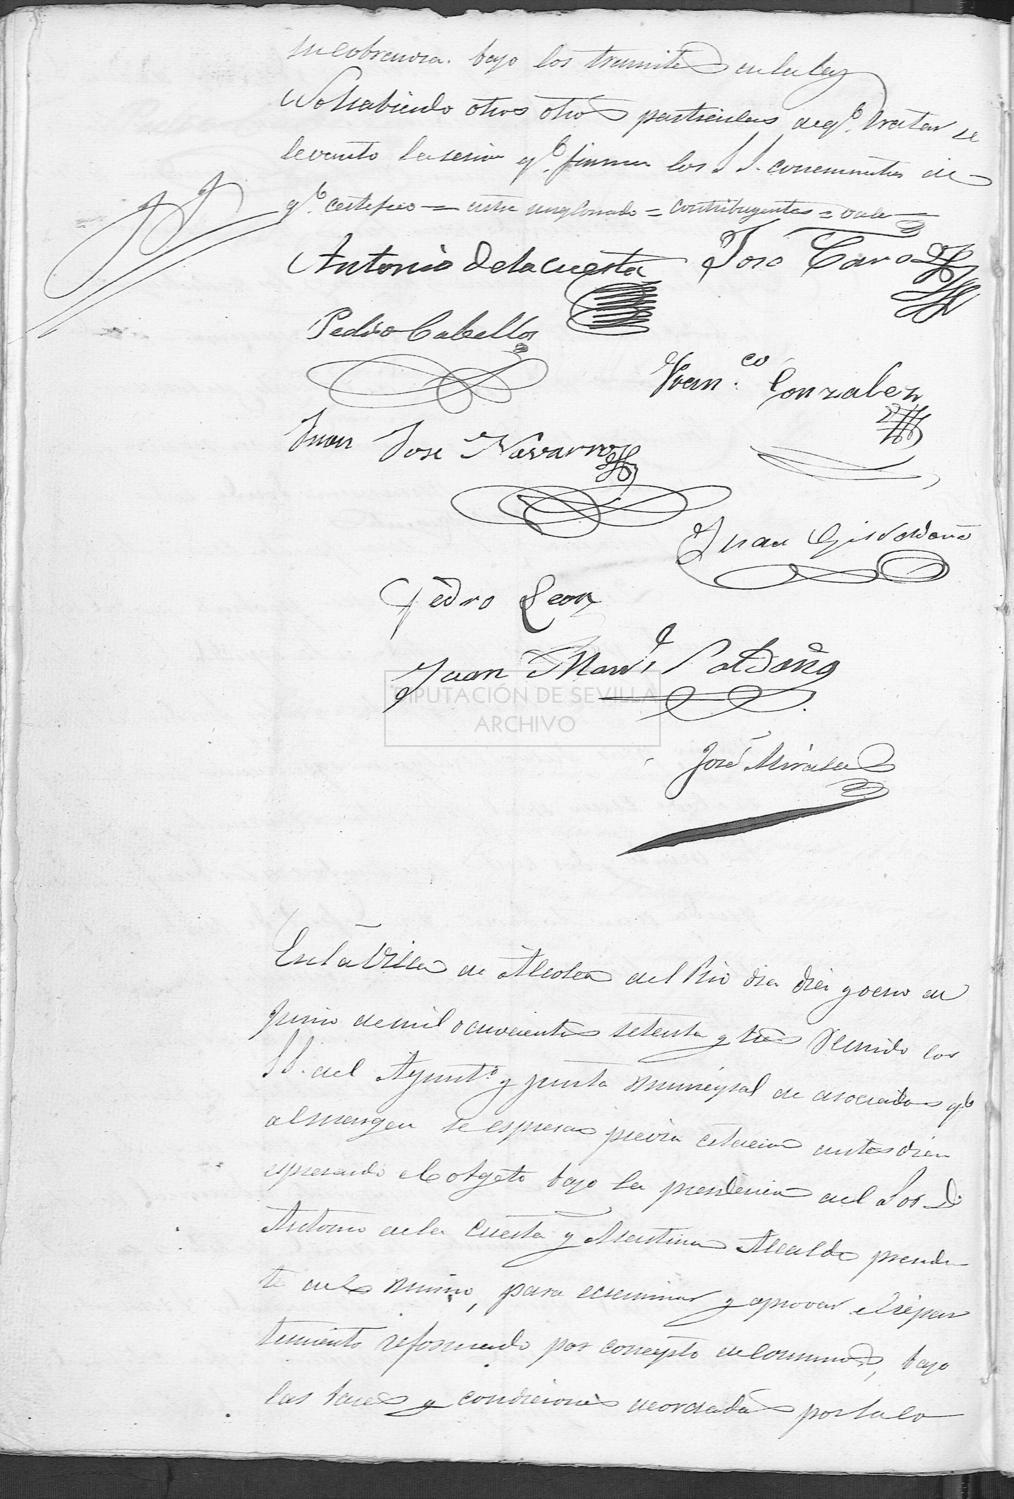 su cobranza bajo los tramites de la ley
No habiendo otros otros particulares de qe. tratar se
levanto la sesion qe. firman los S S. concurrentes de
qe. certifico = entre renglonado = contribuyentes = vale =
Antonio de la cuesta Jose Caro
Pedro Cabello
Franco. Gonzalez
Juan Jose Navarro
Juan Gil Saldaña
Pedro Leon
Juan Manl Saldaña
DIPUTACIÓN DE SEVILLA
ARCHIVO
José Mirales
En la Villa de Alcolea del Rio dia diez y ocho de
Junio de mil ochocientos setenta y tres Reunido los
S S. del Ayunto. y junta municipal de asociados qe
al margen se espresan previa citacion ante diem
espresando el obgeto bajo la presidencia del Sor. Dn
Antonio de la Cuesta y Alcalde preside
te del mismo, para ecsaminar y aprovar el repar
timiento reformado por concepto de consumos, bajo
las bases y condiciones acordadas por la co